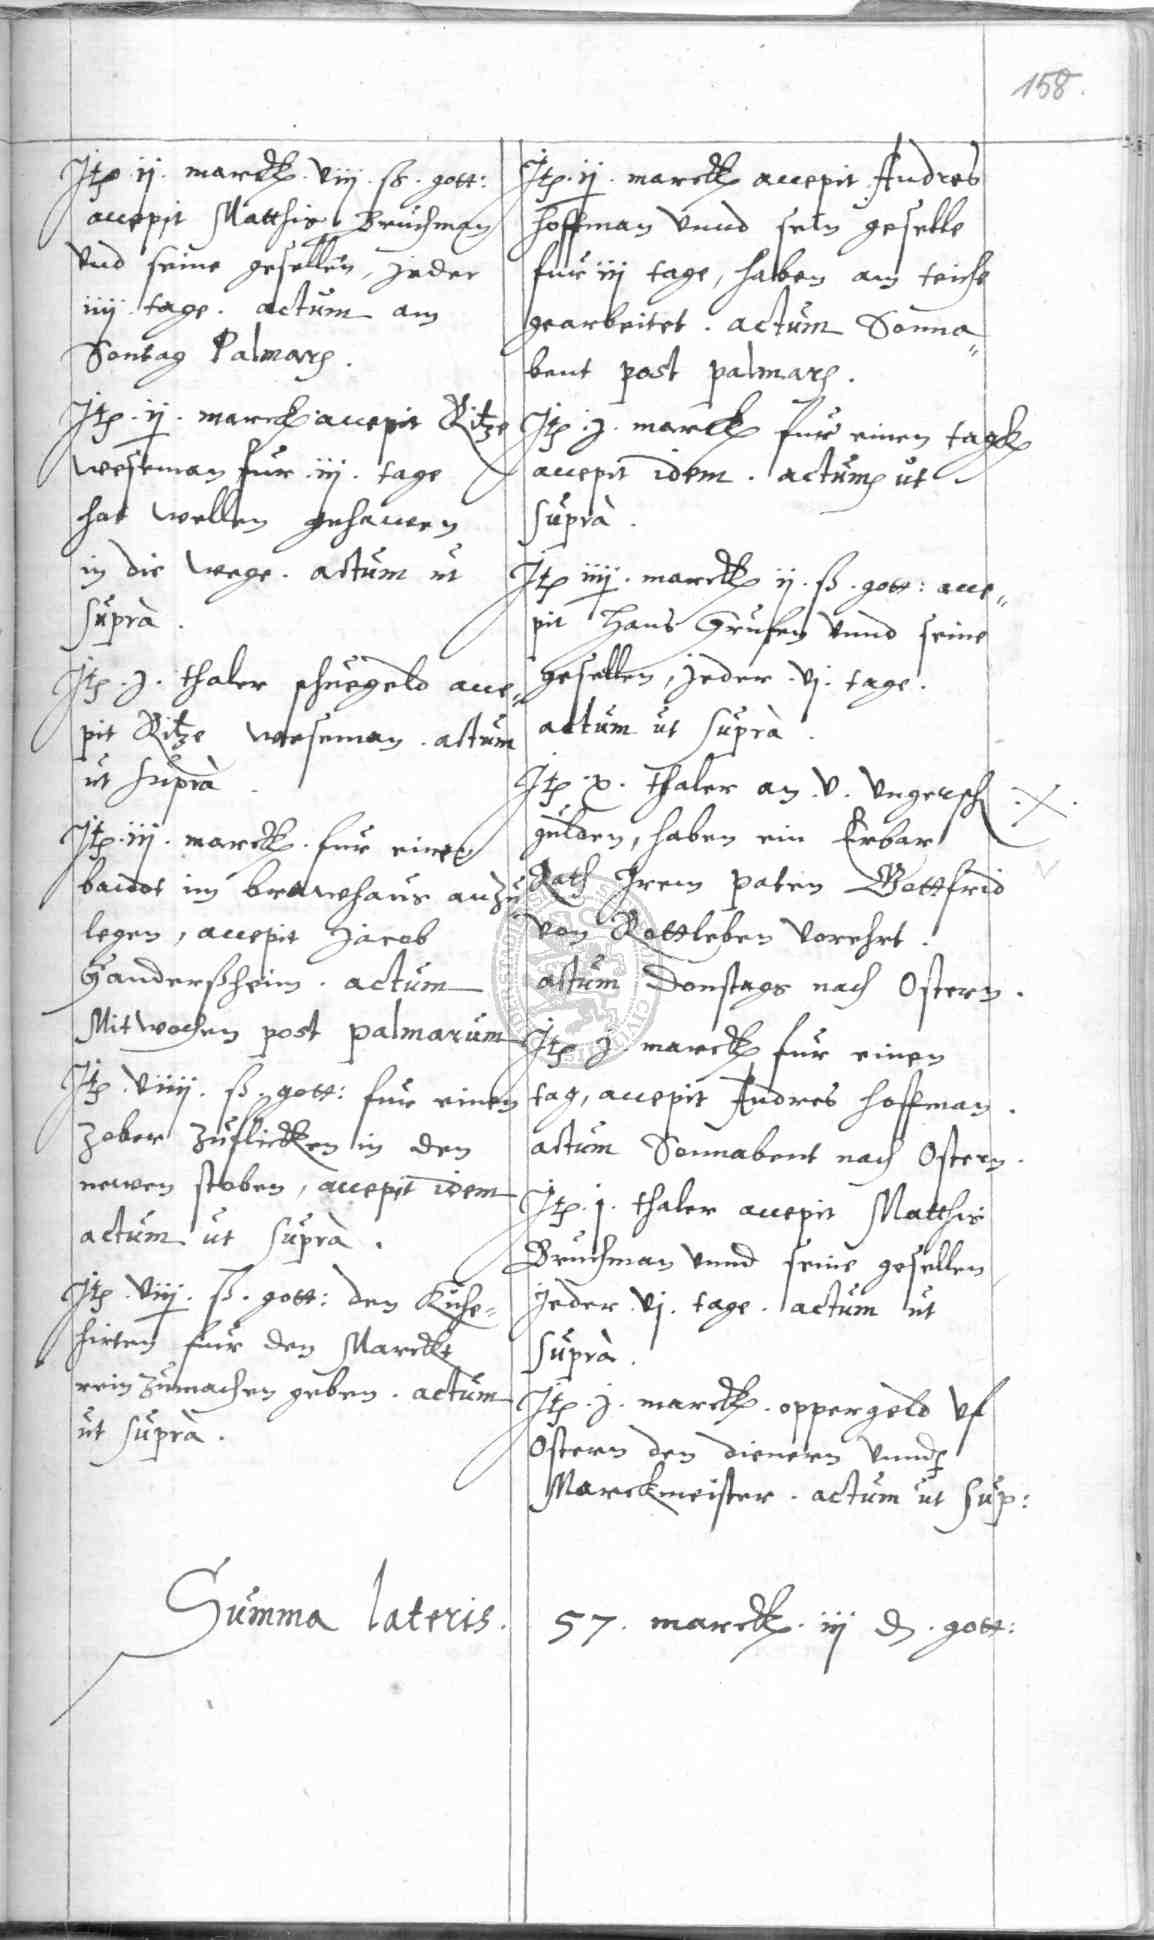 158.
Itę. ij. marckę. viij. ß. gott:
accepit Matthis Bruchman
vnd seine gesellen, jeder
iiij. tage. actum am
Sontag Palmarę.
Itę. ij. marckę accepit Ritze
weseman fur. iij. tage
hat wellen gehauen
in die wege. actum ut
suprà.
Itę. j. thaler schuegeld acce-
pit Ritze weseman. actum
ut suprà.
Itę. iij. marckę. fur einen
im brawhaus anzu
legen, accepit Jacob
Ganderßheim. actum
Mitwochen post palmarum
Itę. viiij. ß. gott: fur einen
zober zuflicken in den
newen stoben, accepit idem
actum ut suprà.
Itę. viij. ß. gott: den Kuhe-
hirten fur den Marckt
rein zumachen geben. actum
ut suprà.
Itę. ij. marckę accepit Andres
hoffman vnnd sein geselle
fur iij tage, haben am teiche
gearbeitet. actum Sonna-
bent post palmarę.
Itę. j. marckę fur einen tagk
accepit idem. actum ut
suprà.
Itę iiij. marckę ij. ß. gott: acce-
pit Hans Grufen vnnd seine
gesellen, jeder. vj. tage.
actum ut suprà.
Itę x. thaler an. v. vngersch
gulden, haben ein Erbar
Rath Irem paten Gottfrid
von Rottleben vorehrt.
actum Donstags nach Ostern.
Itę j. marckę fur einen
tag, accepit Andres hoffman.
actum Sonnabent nach Ostern.
Itę. j. thaler accepit Matthis
Bruchman vnnd seine gesellen
jeder. vj. tage. actum ut
suprà.
Itę. j. marckę. oppergeld vf
Ostern den dienern vnnd
Marckmeister. actum ut sup:
Summa lateris. 57. marckę. iij d. gott: